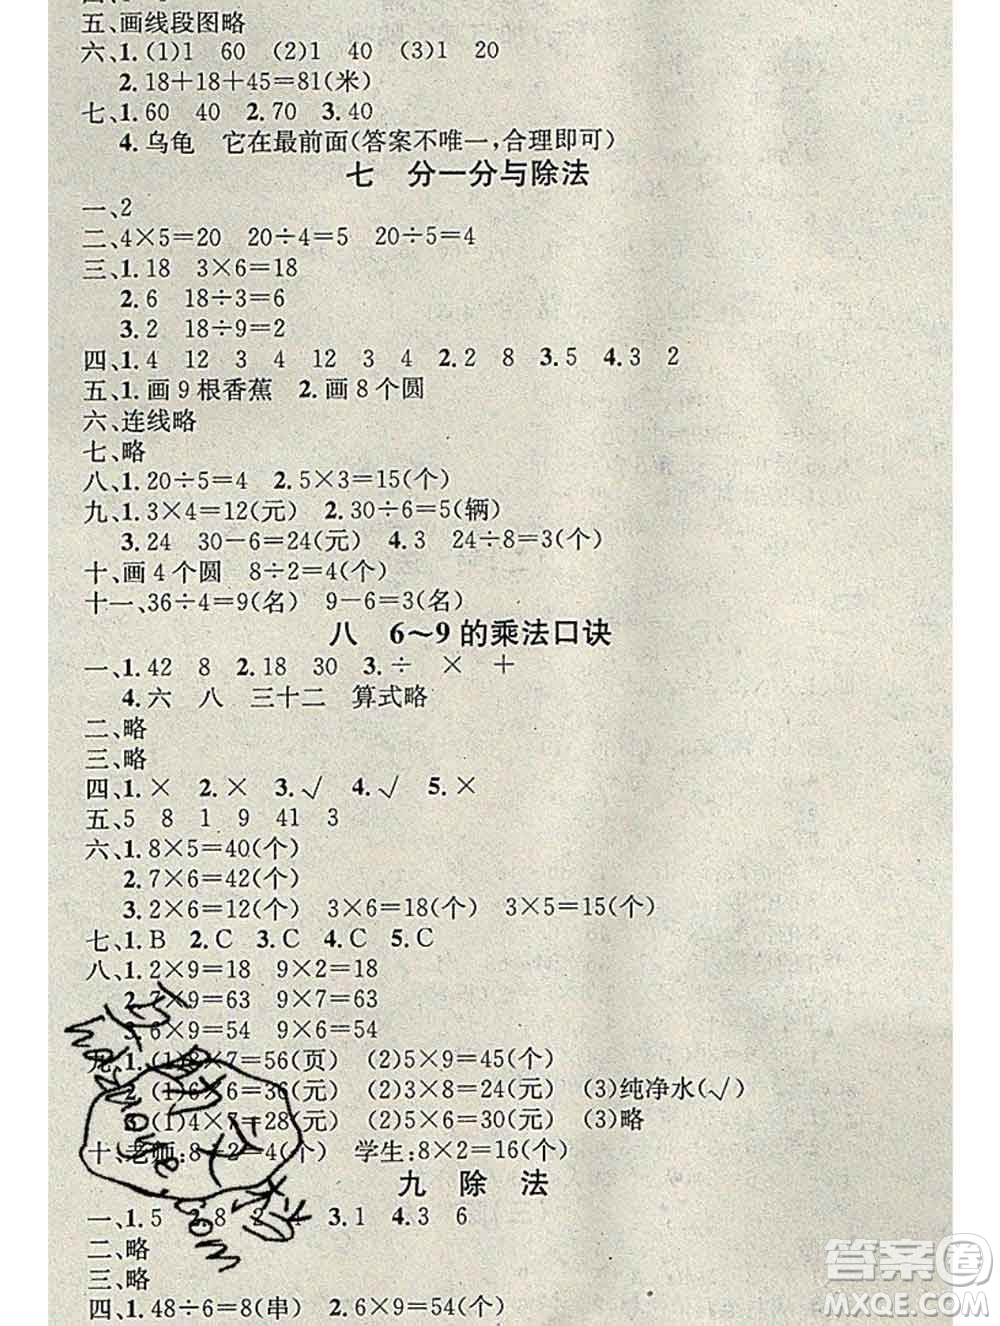 五、画线段图略
六、1. (1)1 60 (2)1 40 (3)1 20
2. 18+18+45=81(米)
七、1. 60 40 2. 70 3. 40
4. 乌龟 它在最前面(答案不唯一,合理即可)
七 分一分与除法
一、2
二、4×5=20 20÷4=5 20÷5=4
三、1. 18 3×6=18
2. 6 18÷3=6
3. 2 18÷9=2
四、1. 4 12 3 4 12 3 4 2. 2 8 3. 5 4. 3 2
五、1. 画9根香蕉 2. 画8个圆
六、连线略
七、略
八、1. 20÷5=4 2. 5×3=15(个)
九、1. 3×4=12(元) 2. 30÷6=5(辆)
3. 24 30-6=24(元) 4. 3 24÷8=3(个)
十、画4个圆 8÷2=4(个)
十一、36÷4=9(名) 9-6=3(名)
八 6~9的乘法口诀
一、1. 42 8 2. 18 30 3. ÷ × +
4. 六 八 三十二 算式略
二、略
三、略
四、1. × 2. × 3. √ 4. √ 5. ×
五、5 8 1 9 41 3
六、1. 8×5=40(个)
2. 7×6=42(个)
3. 2×6=12(个) 3×6=18(个) 3×5=15(个)
七、1. B 2. C 3. C 4. C 5. C
八、1. 2×9=18 9×2=18
2. 7×9=63 9×7=63
3. 6×9=54 9×6=54
九、1. (1)8×7=56(页) (2)5×9=45(个)
2. (1)6×6=36(元) (2)3×8=24(元) (3)纯净水(√)
(1)4×7=28(元) (2)5×6=30(元) (3)略
十、老师:8÷2=4(个) 学生:8×2=16(个)
九 除法
一、1. 5 8 2 4 3. 1 4. 3 6
二、略
三、略
四、1. 48÷6=8(串) 2. 6×9=54(个)
答案圈
MXQE.COM